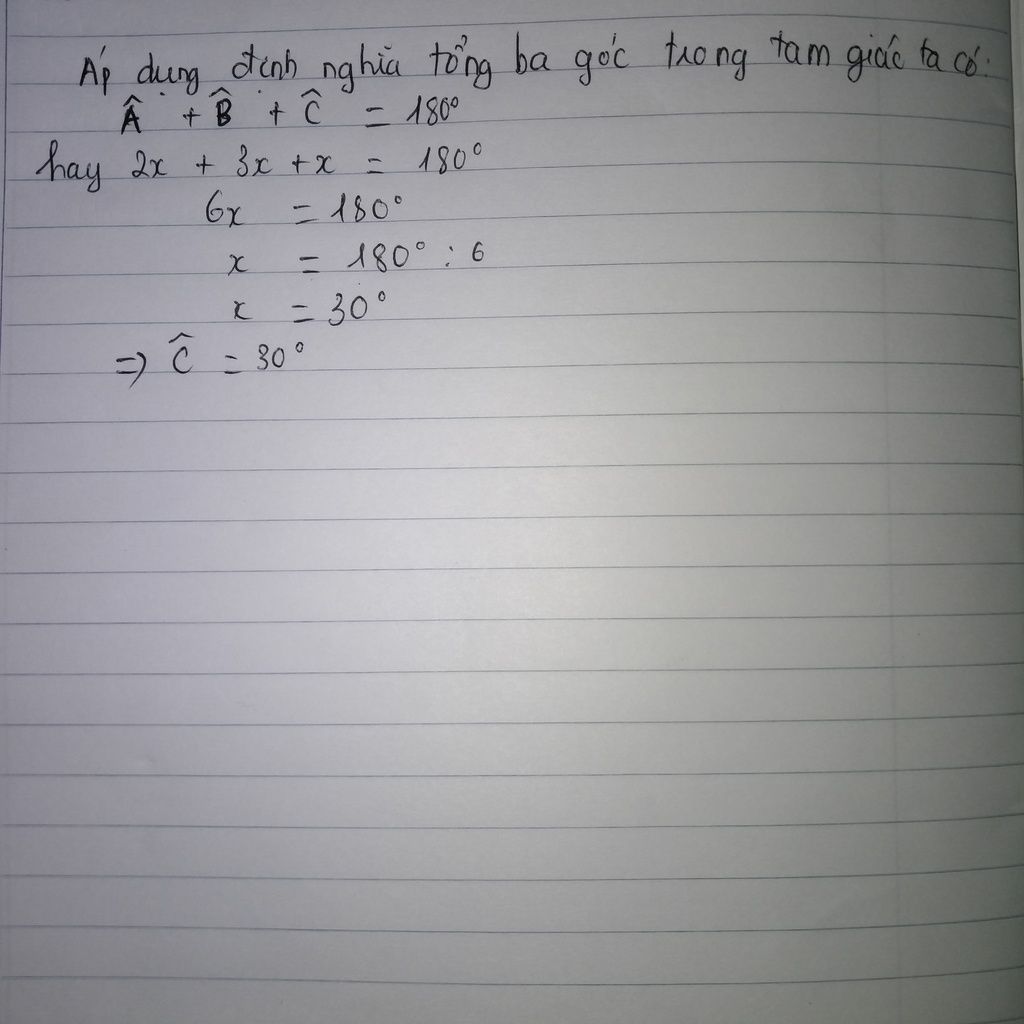 Áp dụng định nghĩa tổng ba góc trong tam giác ta có:
Â + B̂ + Ĉ = 180°
hay 2x + 3x + x = 180°
6x = 180°
x = 180° : 6
x = 30°
=> Ĉ = 30°